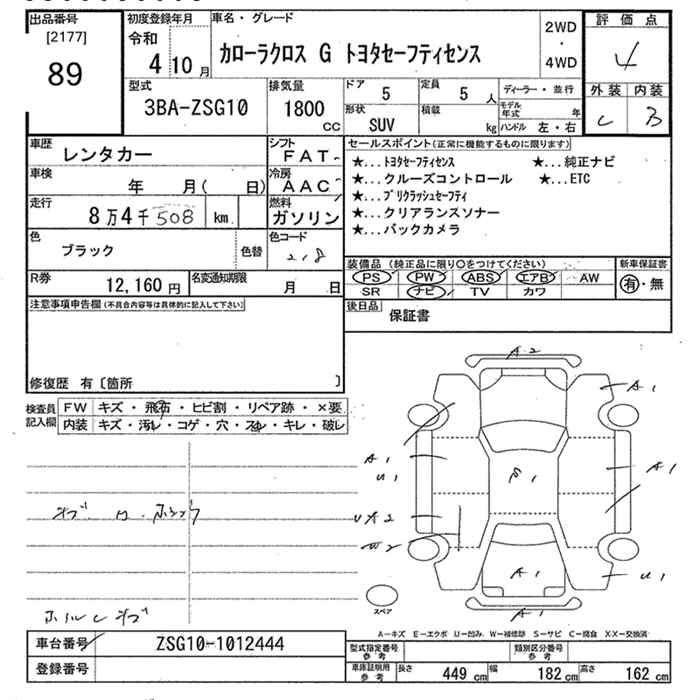 出品番号
[2177]
89
初度登録年月
令和
4 10 月
車名・グレード
カローラクロス G トヨタセーフティセンス
2WD
・
4WD
評価点
4
外装 内装
C B
型式
3BA-ZSG10
排気量
1800
CC
ドア
5
定員
5 人
形状
SUV
積載
kg
ディーラー・並行
モデル年式 年
ハンドル 左・右
車歴
レンタカー
シフト
FAT
車検
年 月( 日)
冷房
AAC
走行
8万4千508 km
燃料
ガソリン
色
ブラック
色替
色コード
218
R券
12,160 円
名変通知期限
月 日
セールスポイント(正常に機能するものに限ります)
★...トヨタセーフティセンス ★...純正ナビ
★...クルーズコントロール ★...ETC
★...プリクラッシュセーフティ
★...クリアランスソナー
★...バックカメラ
装備品(純正品に限り○をつけてください)
PS PW ABS エアB AW
SR ナビ TV カワ
新車保証書
有・無
後日品
保証書
注意事項申告欄(不具合内容等は具体的に記入して下さい)
修復歴 有〔箇所 〕
検査員記入欄
FW キズ・飛石・ヒビ割・リペア跡・×要
内装 キズ・汚レ・コゲ・穴・スレ・キレ・破レ
A2
A1
A1
U1
A1
A1
U1
A1
W2
スペア
A-キズ E-エクボ U-凹み W-補修跡 S-サビ C-腐食 XX-交換済
車台番号
ZSG10-1012444
登録番号
型式指定番号参考
類別区分番号参考
車庫証明用参考
長さ 449 cm 幅 182 cm 高さ 162 cm